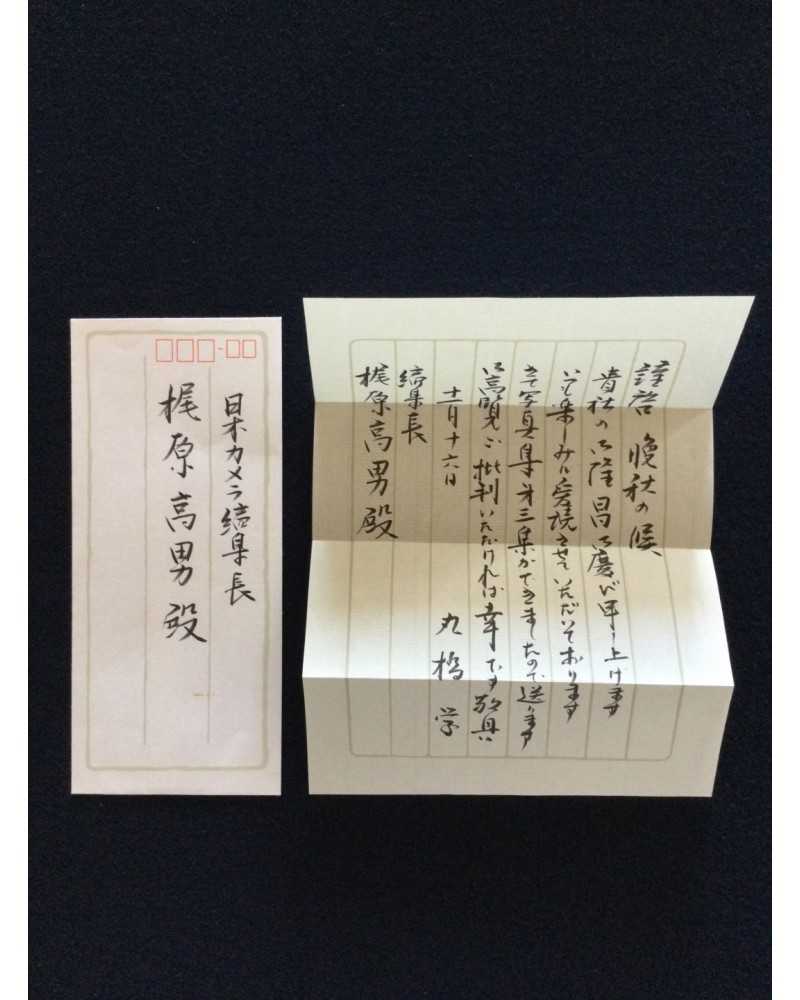 日本カメラ編集長
梶原高男殿
謹啓 晩秋の候
貴社の御隆昌御慶び申し上げます
いつも楽しみに愛読させていただいております
さて写真集第三集ができましたので送ります
御高覧ご批判いただければ幸です 敬具
十一月十六日 丸橋 学
編集長
梶原高男殿